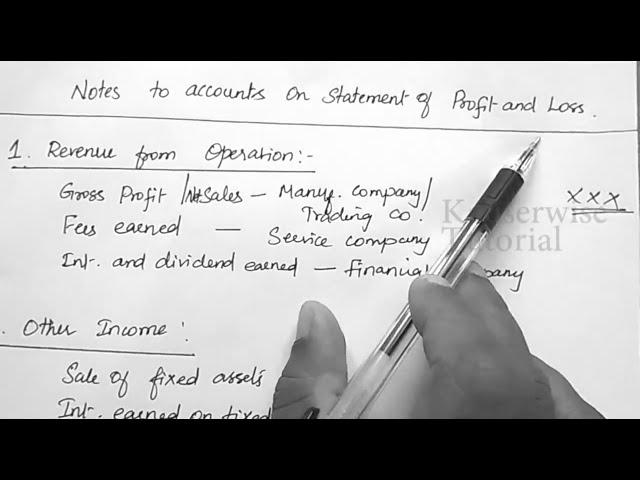 Notes to accounts on Statement of Profit and Loss.
1. Revenue from Operation:-
Gross Profit /Net Sales – Manuf. company/
Trading Co.
xxx
Fees earned — Service company
Int. and dividend earned – Financial
Kauserwise
Tutorial
. Other Income:
Sale of fixed assets
Int. earned on fixed